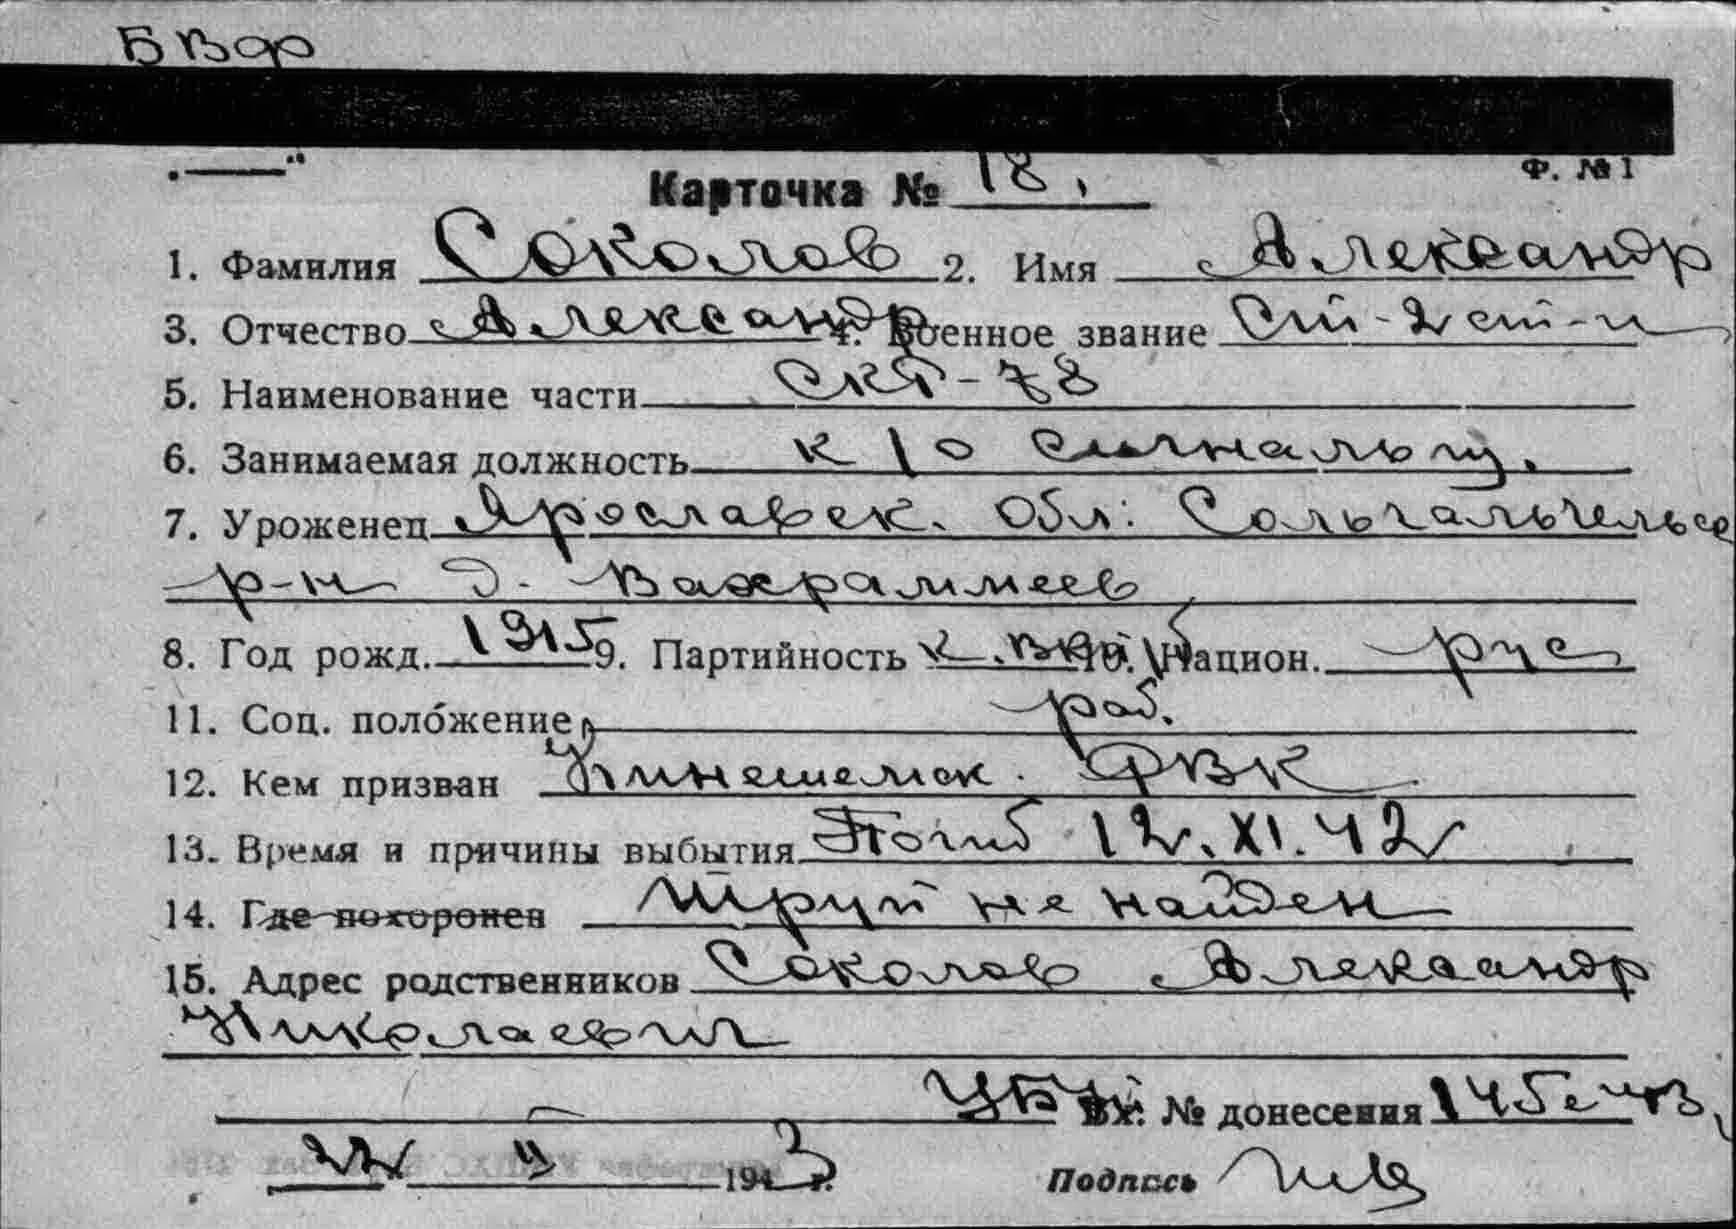 БВФ
Ф. №1
Карточка № 18.
1. Фамилия Соколов 2. Имя Александр
3. Отчество Александр 4. Военное звание Ст-2 ст-и
5. Наименование части СКР-78
6. Занимаемая должность к/о сигнальщ.
7. Уроженец Ярославск. Обл:
р-н д. Вахраммеев
8. Год рожд. 1915 9. Партийность к. ВКП/б 10. Национ. рус
11. Соц. положение раб.
12. Кем призван Кинешемск. РВК
13. Время и причины выбытия Погиб 12.XI.42
14. Где похоронен труп не найден
15. Адрес родственников Соколов Александр
Николаевич
Вх. № донесения
22 II 1943 г. Подпись